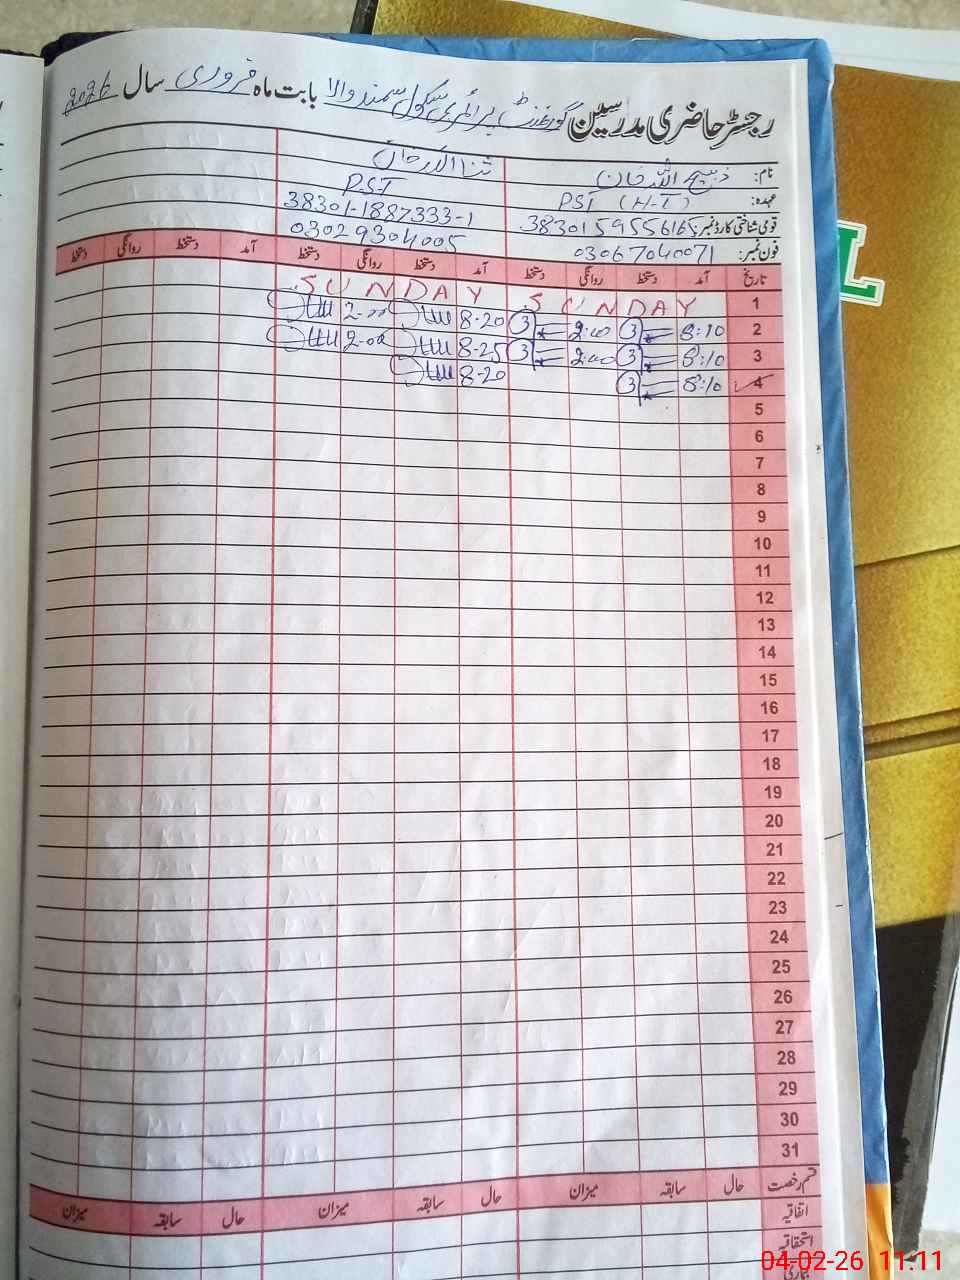 رجسٹر حاضری مدرسین گورنمنٹ پرائمری سکول سمندوالا بابت ماہ فروری سال 2026
نام: ذبیح اللہ خان ثنا اللہ خان
عہدہ: PST (H-T) PST
قومی شناختی کارڈ نمبر: 38301-1887333-1
فون نمبر: 03067040071 03029304005
تاریخ آمد دستخط روانگی دستخط آمد دستخط روانگی دستخط آمد دستخط روانگی دستخط
1 SUNDAY SUNDAY
2 8:10 2:00 8-20 2-00
3 8:10 2:00 8-25 2-00
4 8:10 8-20
5
6
7
8
9
10
11
12
13
14
15
16
17
18
19
20
21
22
23
24
25
26
27
28
29
30
31
قسم رخصت حال سابقہ میزان حال سابقہ میزان حال سابقہ میزان
اتفاقیہ
استحقاقیہ
بیماری
L
04-02-26 11:11